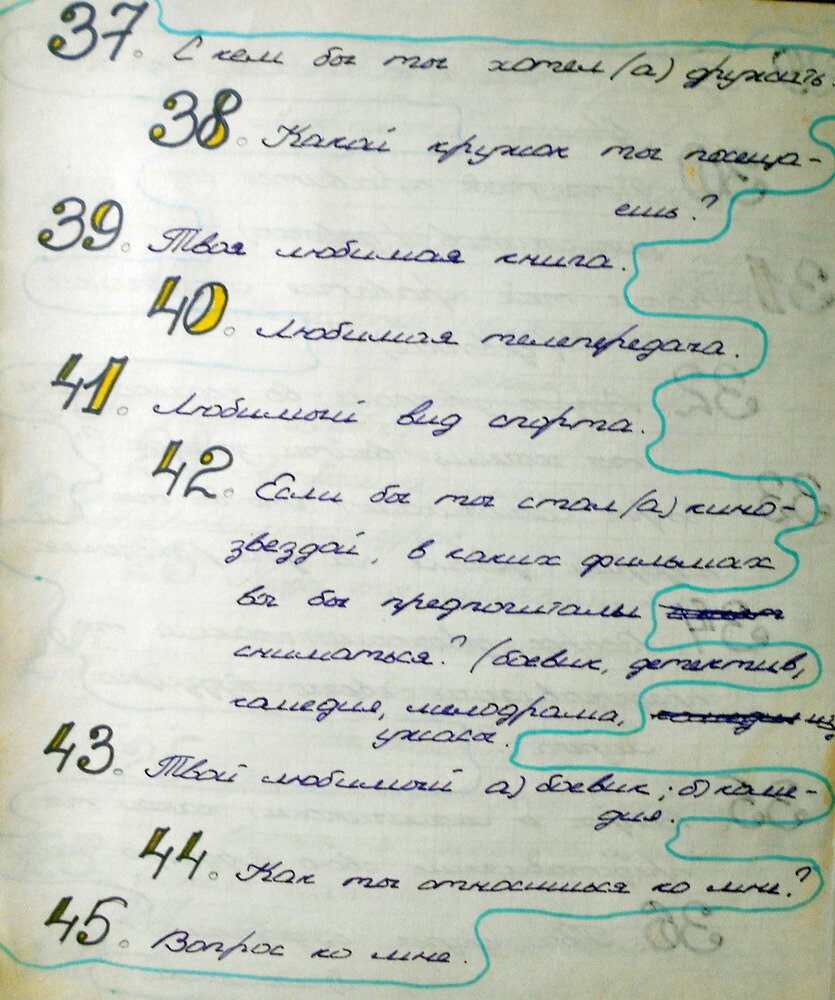 37. С кем бы ты хотел (а) дружить
38. Какой кружок ты посеща-
ешь?
39. Твоя любимая книга.
40. Любимая телепередача.
41. Любимый вид спорта.
42. Если бы ты стал (а) кино-
звездой, в каких фильмах
вы бы предпочитали
сниматься? (боевик, детектив,
комедия, мелодрама,
ужасы.
43. Твой любимый а) боевик; б) коме-
дия.
44. Как ты относишься ко мне?
45. Вопрос ко мне.